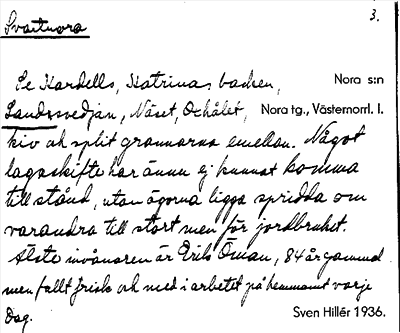 Svartnora
3.
Se Kardells, Katrinas backen, Nora s:n
Landssvedjan, Näset, Oxhålet, Nora tg., Västernorrl. l.
kiv och split grannarna emellan. Något
lagaskifte har ännu ej kunnat komma
till stånd, utan ägorna ligga spridda om
varandra till stort men för jordbruket.
Älste invånaren är Erik Öman, 84 år gammal
men fullt frisk och med i arbetet på hemmanet varje
dag.
Sven Hillér 1936.